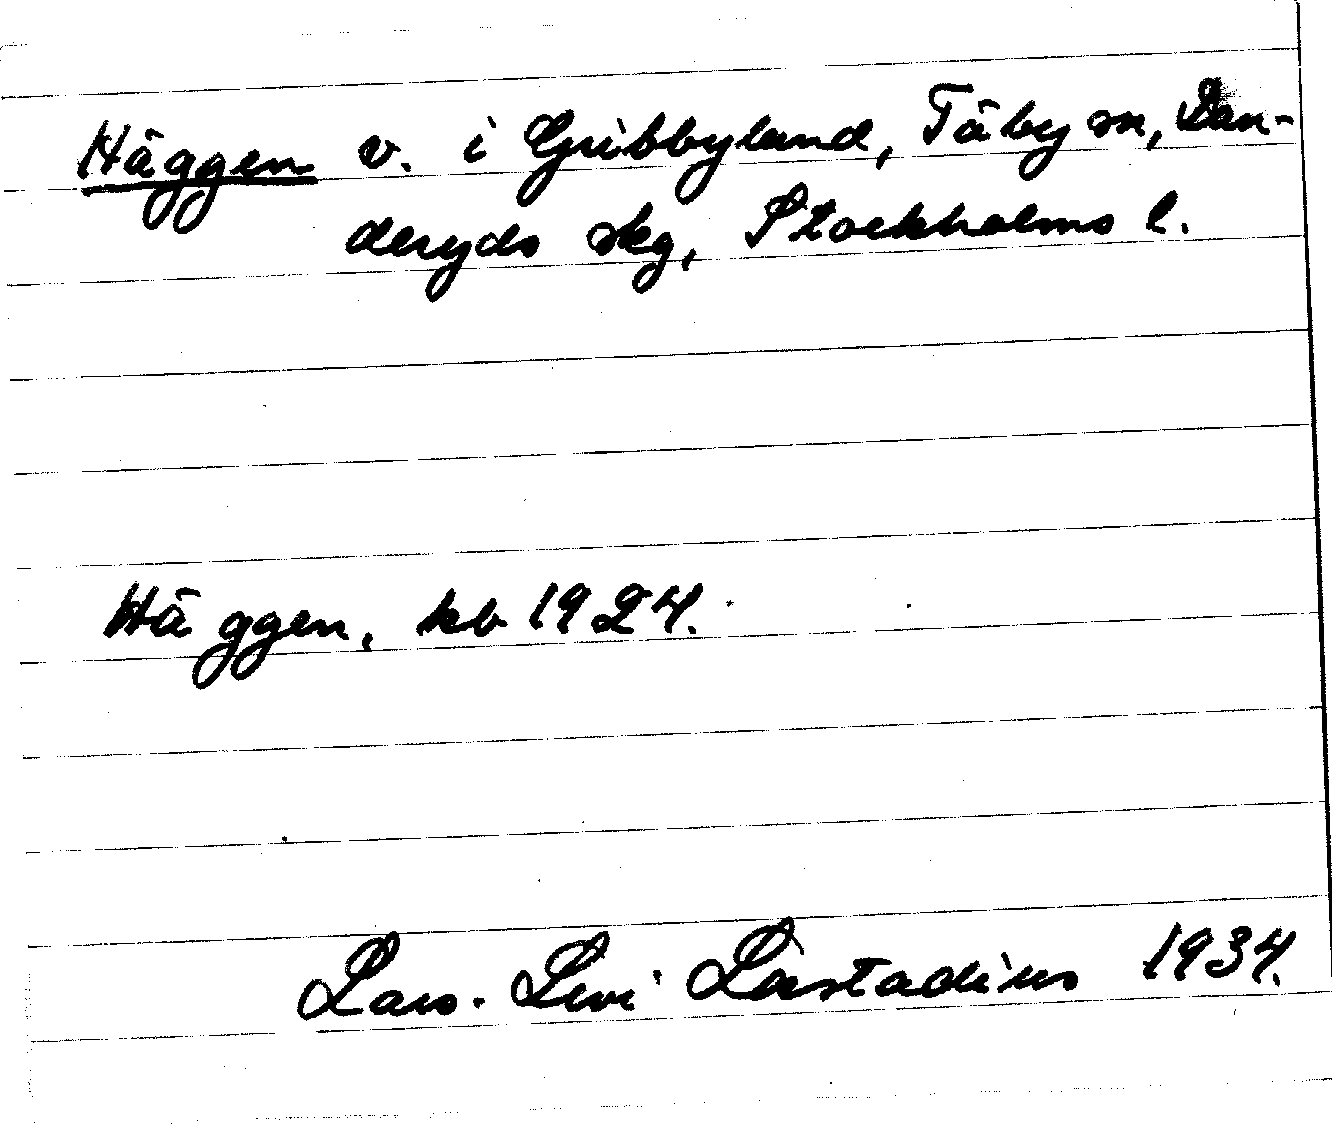 Häggen v. i Gribbyland, Täby sn, Dan-
deryds skg, Stockholms l.
Häggen. kb 1924.
Lars-Levi Læstadius 1934.